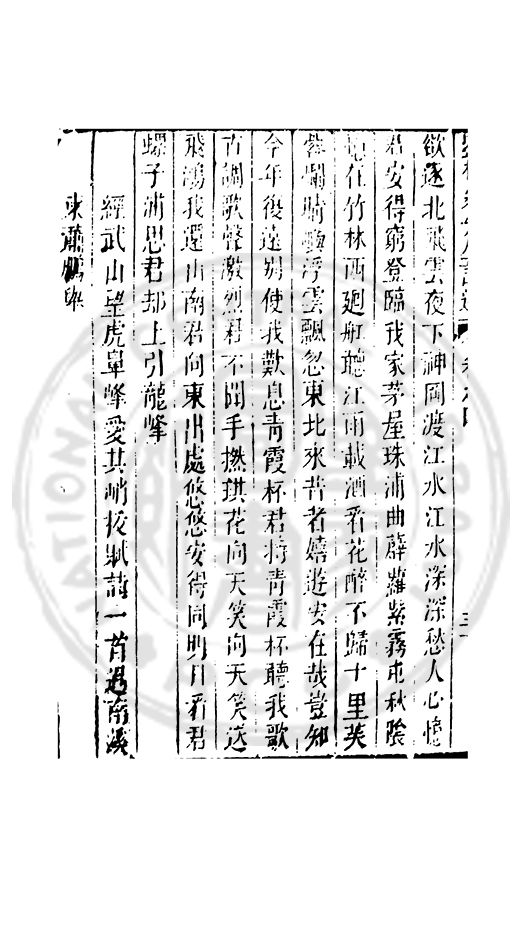 欲逐北飛雲夜下神岡渡江水江水深深愁人心憶
君安得窮登臨我家茅屋珠浦曲薜蘿紫霧屯秋陰
在竹林西廻舡聽江雨載酒看花醉不歸十里芙
蓉爛晴 浮雲飄忽東北來昔者嬉遊安在哉豈知
今年復遠別使我歎息青霞杯君持青霞杯聽我歌
古調歌聲激烈君不聞手撚琪花向天笑向天笑送
飛鴻我還山南君向東出處悠悠安得同明日看君
螺子浦思君却上引龍峰
經武山望虎鼻峰愛其峭拔賦詩一首過南溪
東蕭鵬舉